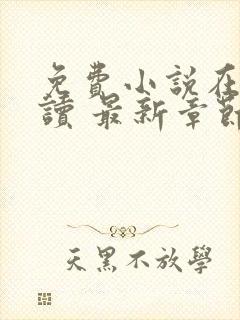 免費小說在
讀 最新章節
天黑不放學